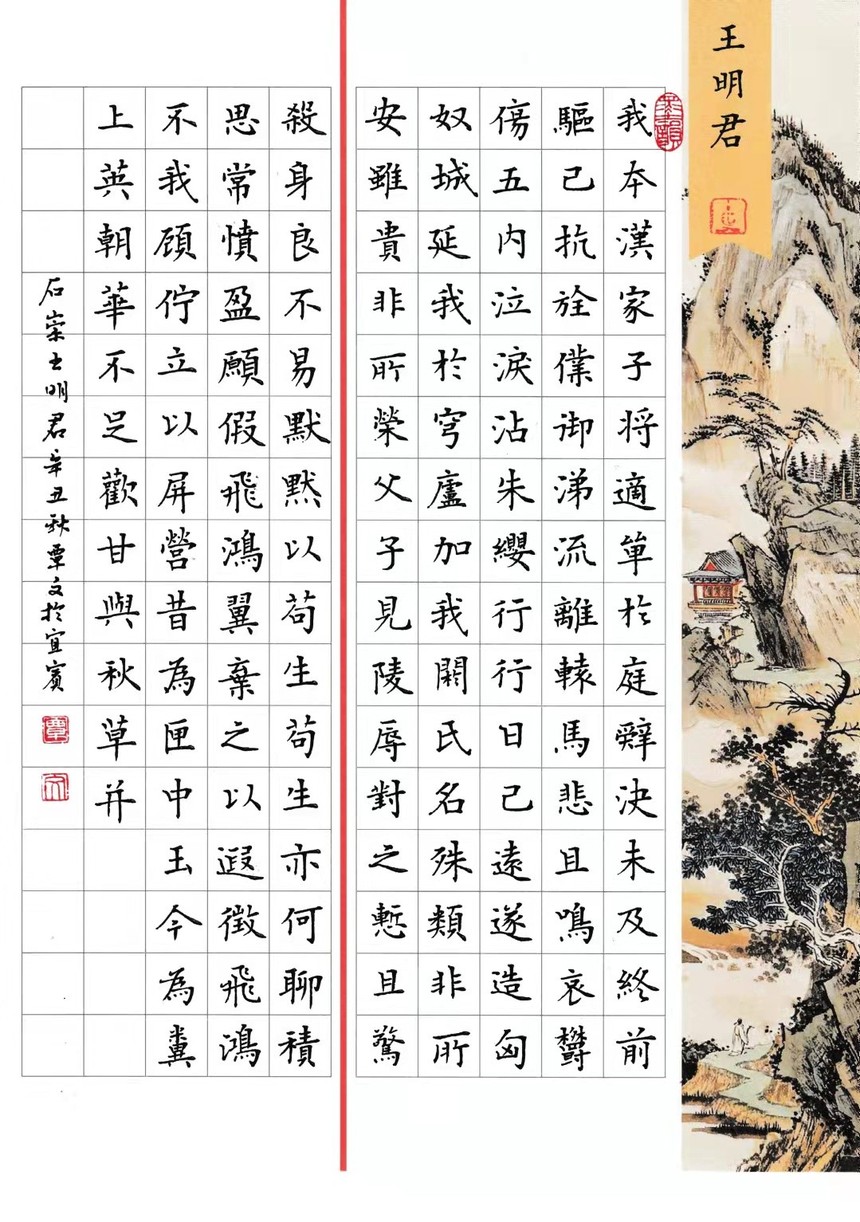 王明君
我本漢家子將適單於庭辭決未及終前
驅已抗旌僕御涕流離轅馬悲且鳴哀鬱
傷五內泣淚沾朱纓行行日已遠遂造匈
奴城延我於穹廬加我閼氏名殊類非所
安雖貴非所榮父子見陵辱對之慙且驚
殺身良不易默默以苟生苟生亦何聊積
思常憤盈願假飛鴻翼棄之以遐徵飛鴻
不我顧佇立以屏營昔為匣中玉今為糞
上英朝華不足歡甘與秋草并
石崇王明君辛丑秋覃文於宜賓
覃
文